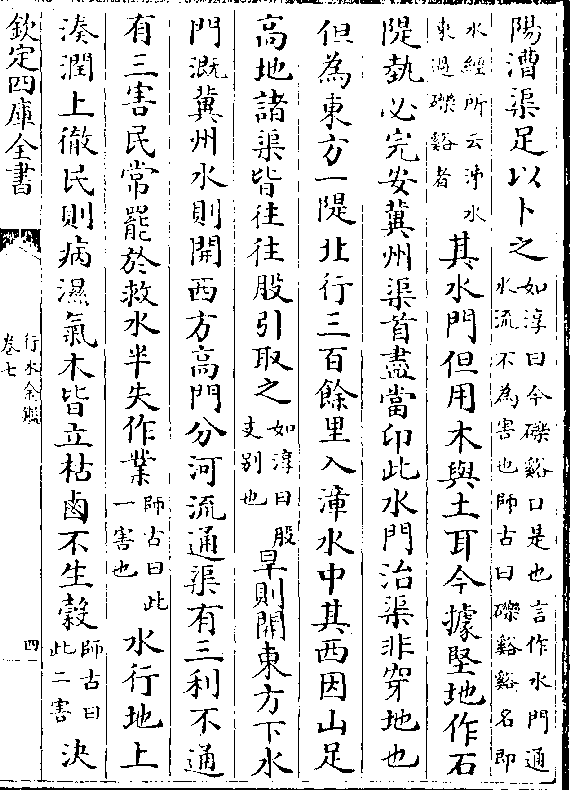 陽漕渠足以卜之如淳曰今礫谿口是也言作水門通水流不為害也師古曰礫谿谿名即
水經所云泲水東過礫谿者其水門但用木與土耳今據堅地作石
隄埶必完安冀州渠首盡當卬此水門治渠非穿地也
但為東方一隄北行三百餘里入漳水中其西因山足
高地諸渠皆往往股引取之如淳曰股支别也旱則開東方下水
門溉冀州水則開西方高門分河流通渠有三利不通
有三害民常罷於救水半失作業師古曰此一害也水行地上
湊潤上徹民則病濕氣木皆立枯鹵不生穀師古曰此二害決
欽定四庫全書
行水金鑑
卷七
四